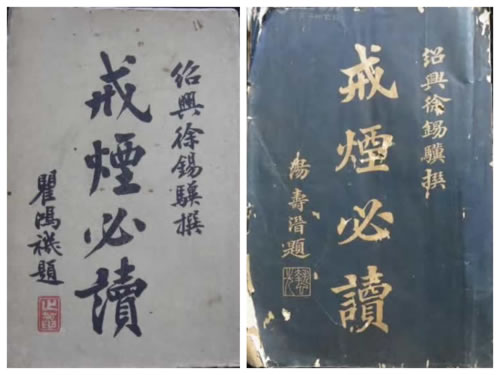 紹興徐錫驥撰
戒煙必讀
瞿鴻禨題
紹興徐錫驥撰
戒煙必讀
湯壽潛題